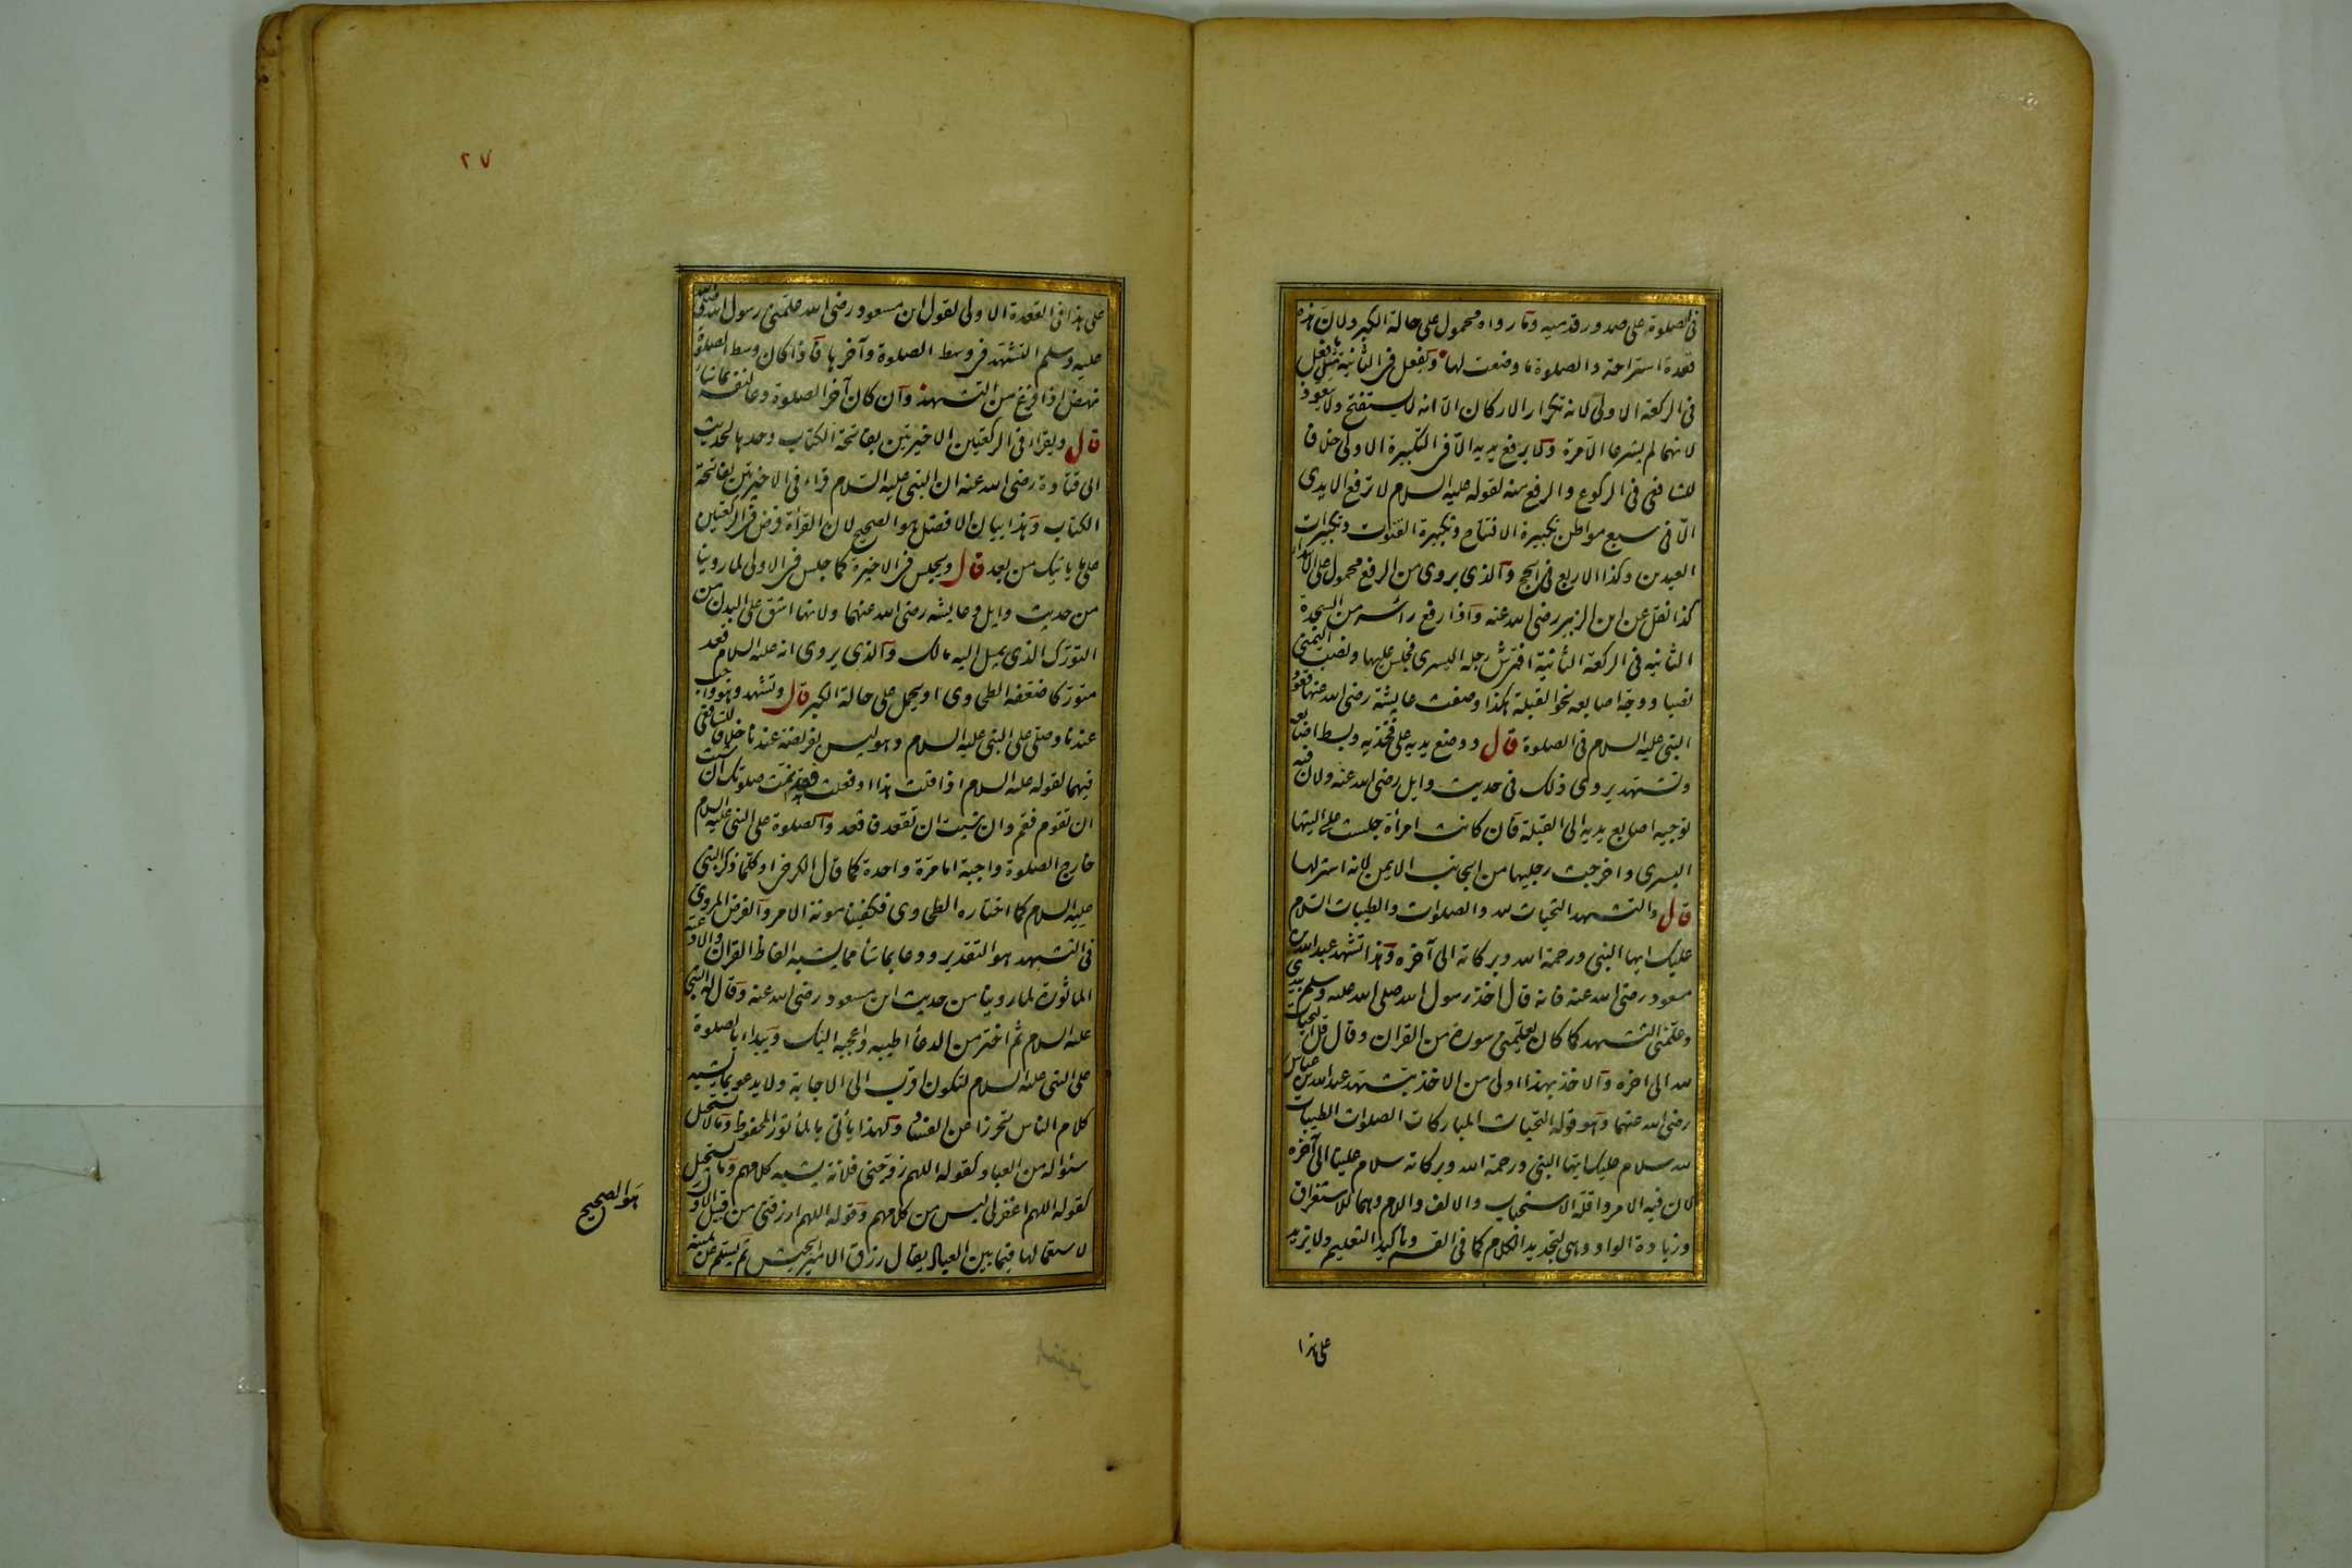 فى الصلوة على صدور قدميه وما رواه محمول على حالة الكبر ولان هذه
قعدة استراحة والصلوة ما وضعت لها ويفعل فى الثانية مثل ما فعل
فى الركعة الاولى لانه تكرار الاركان الا انه لا يستفتح ولا يتعوذ
لانهما لم يشرعا الا مرة ولا يرفع يديه الا فى التكبيرة الاولى خلافا
للشافعى فى الركوع والرفع منه لقوله عليه السلام لا ترفع الايدى
الا فى سبع مواطن تكبيرة الافتتاح وتكبيرة القنوت وتكبيرات
العيدين وكذا الاربع فى الحج والذى يروى من الرفع محمول على الابتداء
كذا نقل عن ابن الزبير رضى الله عنه واذا رفع رأسه من السجدة
الثانيه فى الركعة الثانية افترش رجله اليسرى فجلس عليها ونصب اليمنى
نصبا ووجه اصابعه نحو القبلة هكذا وصفت عايشة رضى الله عنها قعود
النبى عليه السلام فى الصلوة قال ووضع يديه على فخذيه وبسط اصابعه
وتشهد يروى ذلك فى حديث وايل رضى الله عنه ولان فيه
توجيه اصابع يديه الى القبلة فان كانت امرأة جلست على اليتها
اليسرى واخرجت رجليها من الجانب الايمن لانه استر لها
قال والتشهد التحيات لله والصلوات والطيبات السلام
عليك ايها النبى ورحمة الله وبركاته الى آخره وهذا تشهد عبد الله بن
مسعود رضى الله عنه فانه قال اخذ رسول الله صلى الله عليه وسلم بيدى
وعلمنى التشهد كما كان يعلمنى سورة من القران وقال قل التحيات
لله الى اخره والاخذ بهذا اولى من الاخذ بتشهد عبد الله بن عباس
رضى الله عنهما وهو قوله التحيات المباركات الصلوات الطيبات
لله سلام عليك ايها النبى ورحمة الله وبركاته سلام علينا الى آخره
لان فيه الامر واقله الاستحباب والالف واللام وهما للاستغراق
وزيادة الواو وهى لتجديد الكلام كما فى القسم وتأكيد التعليم ولا يزيد
على هذا
٢٧
على هذا فى القعدة الاولى لقول ابن مسعود رضى الله علمنى رسول الله صلى
عليه وسلم التشهد فى وسط الصلوة وآخرها فاذا كان وسط الصلوة
نهض اذا فرغ من التشهد وان كان آخر الصلوة دعا لنفسه بما شاء
قال ويقراء فى الركعتين الاخيرتين بفاتحة الكتاب وحدها لحديث
ابى قتادة رضى الله عنه ان النبى عليه السلام قراء فى الاخيرتين بفاتحة
الكتاب وهذا بيان الافضل هو الصحيح لان القرأة فرض فى الركعتين
على ما ياتيك من بعد قال ويجلس فى الاخيرة كما جلس فى الاولى لما روينا
من حديث وايل وعايشه رضى الله عنهما ولانها اشق على البدن من
التورك الذى يميل اليه مالك والذى يروى انه عليه السلام قعد
متوركا ضعفه الطحاوى او يحمل على حالة الكبر قال وتشهد وهو واجب
عندنا وصلى على النبى عليه السلام وهو ليس بفريضة عندنا خلافا للشافعى
فيهما لقوله عليه السلام اذا قلت هذا او فعلت فقد تمت صلوتك ان شئت
ان تقوم فقم وان شيت ان تقعد فاقعد والصلوة على النبى عليه السلام
خارج الصلوة واجبة اما مرة واحدة كما قال الكرخى او كلما ذكر النبى
عليه السلام كما اختاره الطحاوى فكفينا مونة الامر والفرض المروى
فى التشهد هو التقدير ودعا بما شاء مما يشبه الفاظ القران والادعية
الماثورة لما روينا من حديث ابن مسعود رضى الله عنه وقال له النبى
عليه السلام ثم اختر من الدعأ اطيبه واعجبه اليك ويبداء بالصلوة
على النبى عليه السلام لتكون اقرب الى الاجابة ولا يدعو بما يشبه
كلام الناس تحرزا عن الفساد ولهذا يأتى بالمأثور المحفوظ وما لا يستحيل
سئواله من العباد كقوله اللهم زوجنى فلانة يشبه كلامهم وما يستحيل
كقوله اللهم اغفر لى ليس من كلامهم وقوله اللهم ارزقنى من قبيل الاول
هو الصحيح
لاستعمالها فيما بين العباد يقال رزق الامير الجيش ثم يسلم عن يمينه